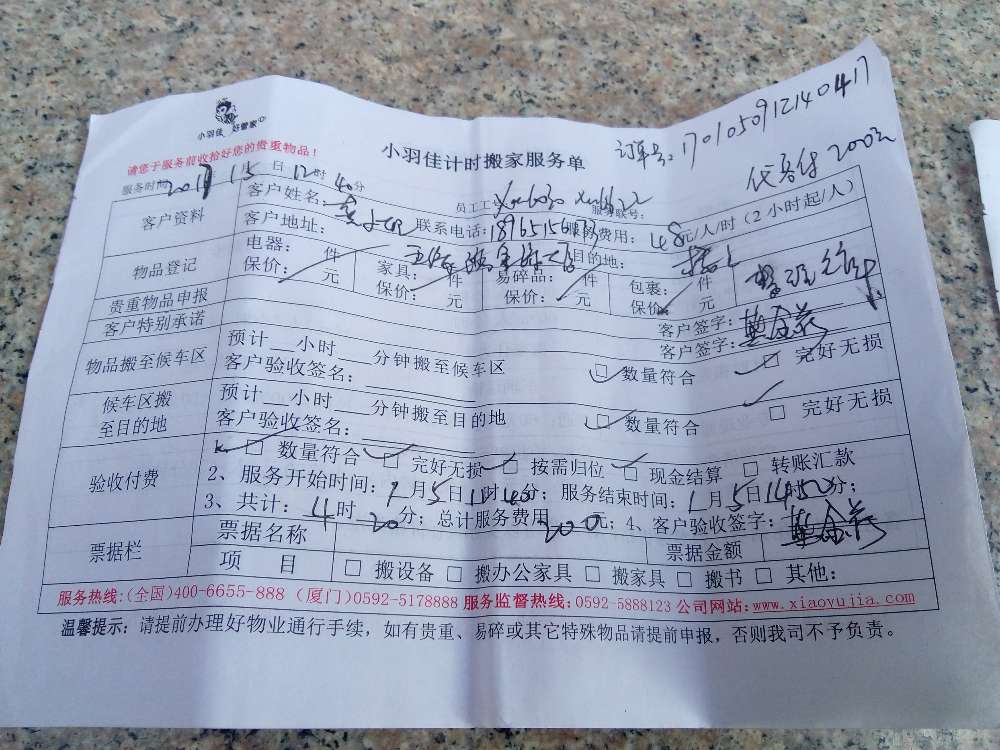 小羽佳 好管家
小羽佳计时搬家服务单
订单号: 1701050912140417
请您于服务前收拾好您的贵重物品!
代考付 200元
服务时间 2017 1 5 日 12 时 40 分
员工工 服务联号:
客户资料
客户姓名:
联系电话:
服务费用: 48 元/人/时(2小时起/人)
客户地址: 目的地:
物品登记
电器: 件
保价: 元
家具: 件
保价: 元
易碎品: 件
保价: 元
包裹: 件
保价: 元
贵重物品申报
客户签字:
客户特别承诺
客户签字:
物品搬至候车区
预计__小时___分钟搬至候车区
客户验收签名:
□ 数量符合 □ 完好无损
候车区搬至目的地
预计__小时___分钟搬至目的地
客户验收签名:
□ 数量符合 □ 完好无损
验收付费
□ 数量符合 □ 完好无损 □ 按需归位 □ 现金结算 □ 转账汇款
2、服务开始时间: 1月5日 时 分; 服务结束时间: 1月5日14时50分;
3、共计: 4时 20分; 总计服务费用 200元; 4、客户验收签字:
票据栏
票据名称 票据金额
项 目 □ 搬设备 □ 搬办公家具 □ 搬家具 □ 搬书 □ 其他:
服务热线:(全国)400-6655-888 (厦门)0592-5178888 服务监督热线:0592-5888123 公司网站:www.xiaoyujia.com
温馨提示: 请提前办理好物业通行手续,如有贵重、易碎或其它特殊物品请提前申报,否则我司不予负责。